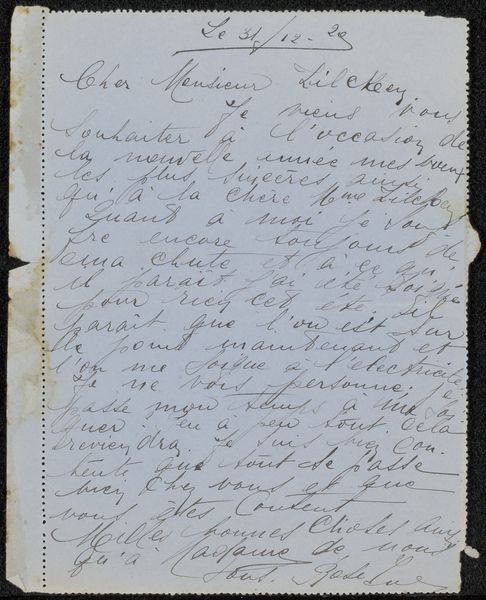 Le 31/12-29
Cher Monsieur Zilcken
Je viens vous
souhaiter à l'occasion de
la nouvelle année mes voeux
les plus sincères ainsi
qu'à la chère Mme Zilcken
Quant à moi je souf
fre encore toujours de
ma chute et à ce qu'
il paraît j'ai été soignée
pour rien cet été. Il
paraît que l'on est sur
le point maintenant et
l'on me soigne à l'électricité
Je ne vois personne. je
passe mon temps à me soi
gner peu à peu tout cela
reviendra. Je suis bien con
tente que tout se passe
bien chez vous et que
vous êtes content
Milles bonnes choses ainsi
qu'à Madame de nous
tous. Rose